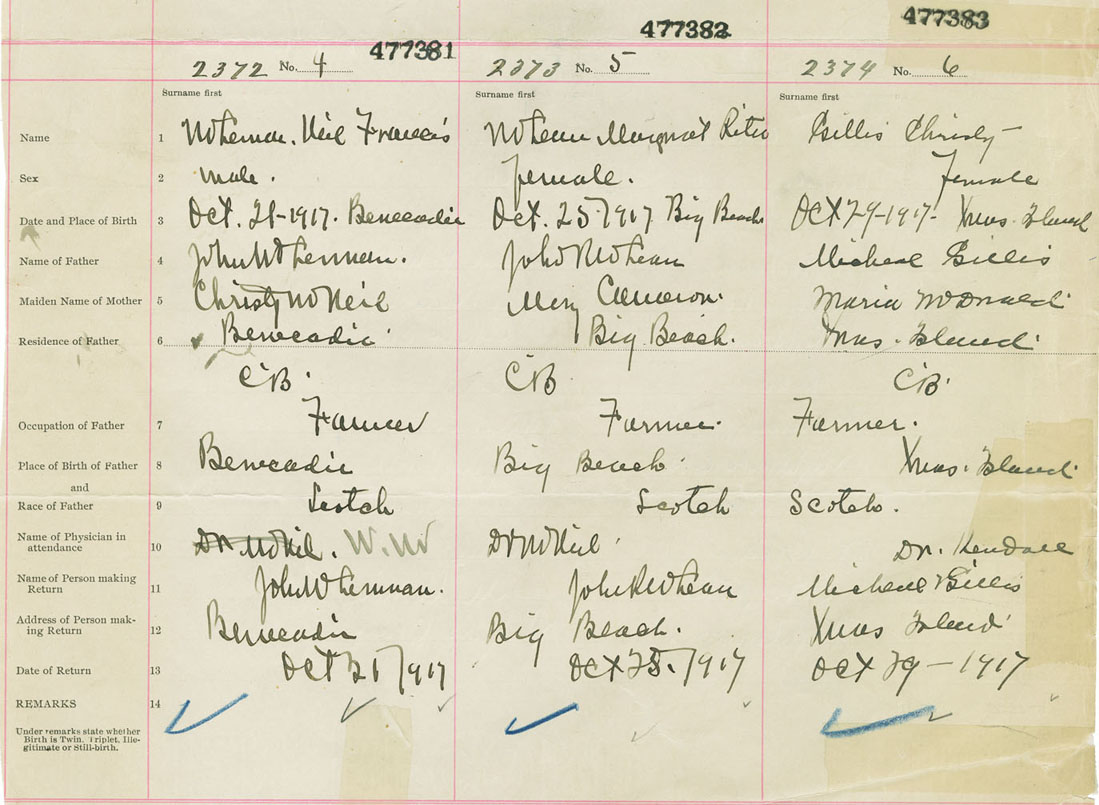 477381 477382 477383
2372 No. 4 2373 No. 5 2374 No. 6
Surname first Surname first Surname first
Name 1 McLennan. Neil Francis McLean Margaret Rita Gillis Christy
Sex 2 male. female. Female
Date and Place of Birth 3 Oct. 21-1917. Benecadie Oct. 25-1917 Big Beach Oct 29-1917- Xmas. Island
Name of Father 4 John McLennan. John R McLean Micheal Gillis
Maiden Name of Mother 5 Christy McNeil Mary Cameron. Maria McDonald
Residence of Father 6 Benecadie Big Beach. Xmas. Island
C.B. C.B C.B.
Occupation of Father 7 Farmer Farmer. Farmer.
Place of Birth of Father 8 Benecadie Big Beach Xmas. Island
and
Race of Father 9 Scotch Scotch Scotch.
Name of Physician in
attendance 10 Dr McNeil. Dr McNeil Dr. Kendall
Name of Person making
Return 11 John McLennan. John R McLean Micheal Gillis
Address of Person mak-
ing Return 12 Benecadie Big Beach. Xmas Island
Date of Return 13 Oct 21/1917 Oct 25./1917 Oct 29-1917
REMARKS 14
Under remarks state whether
Birth is Twin, Triplet, Ille-
gitimate or Still-birth.